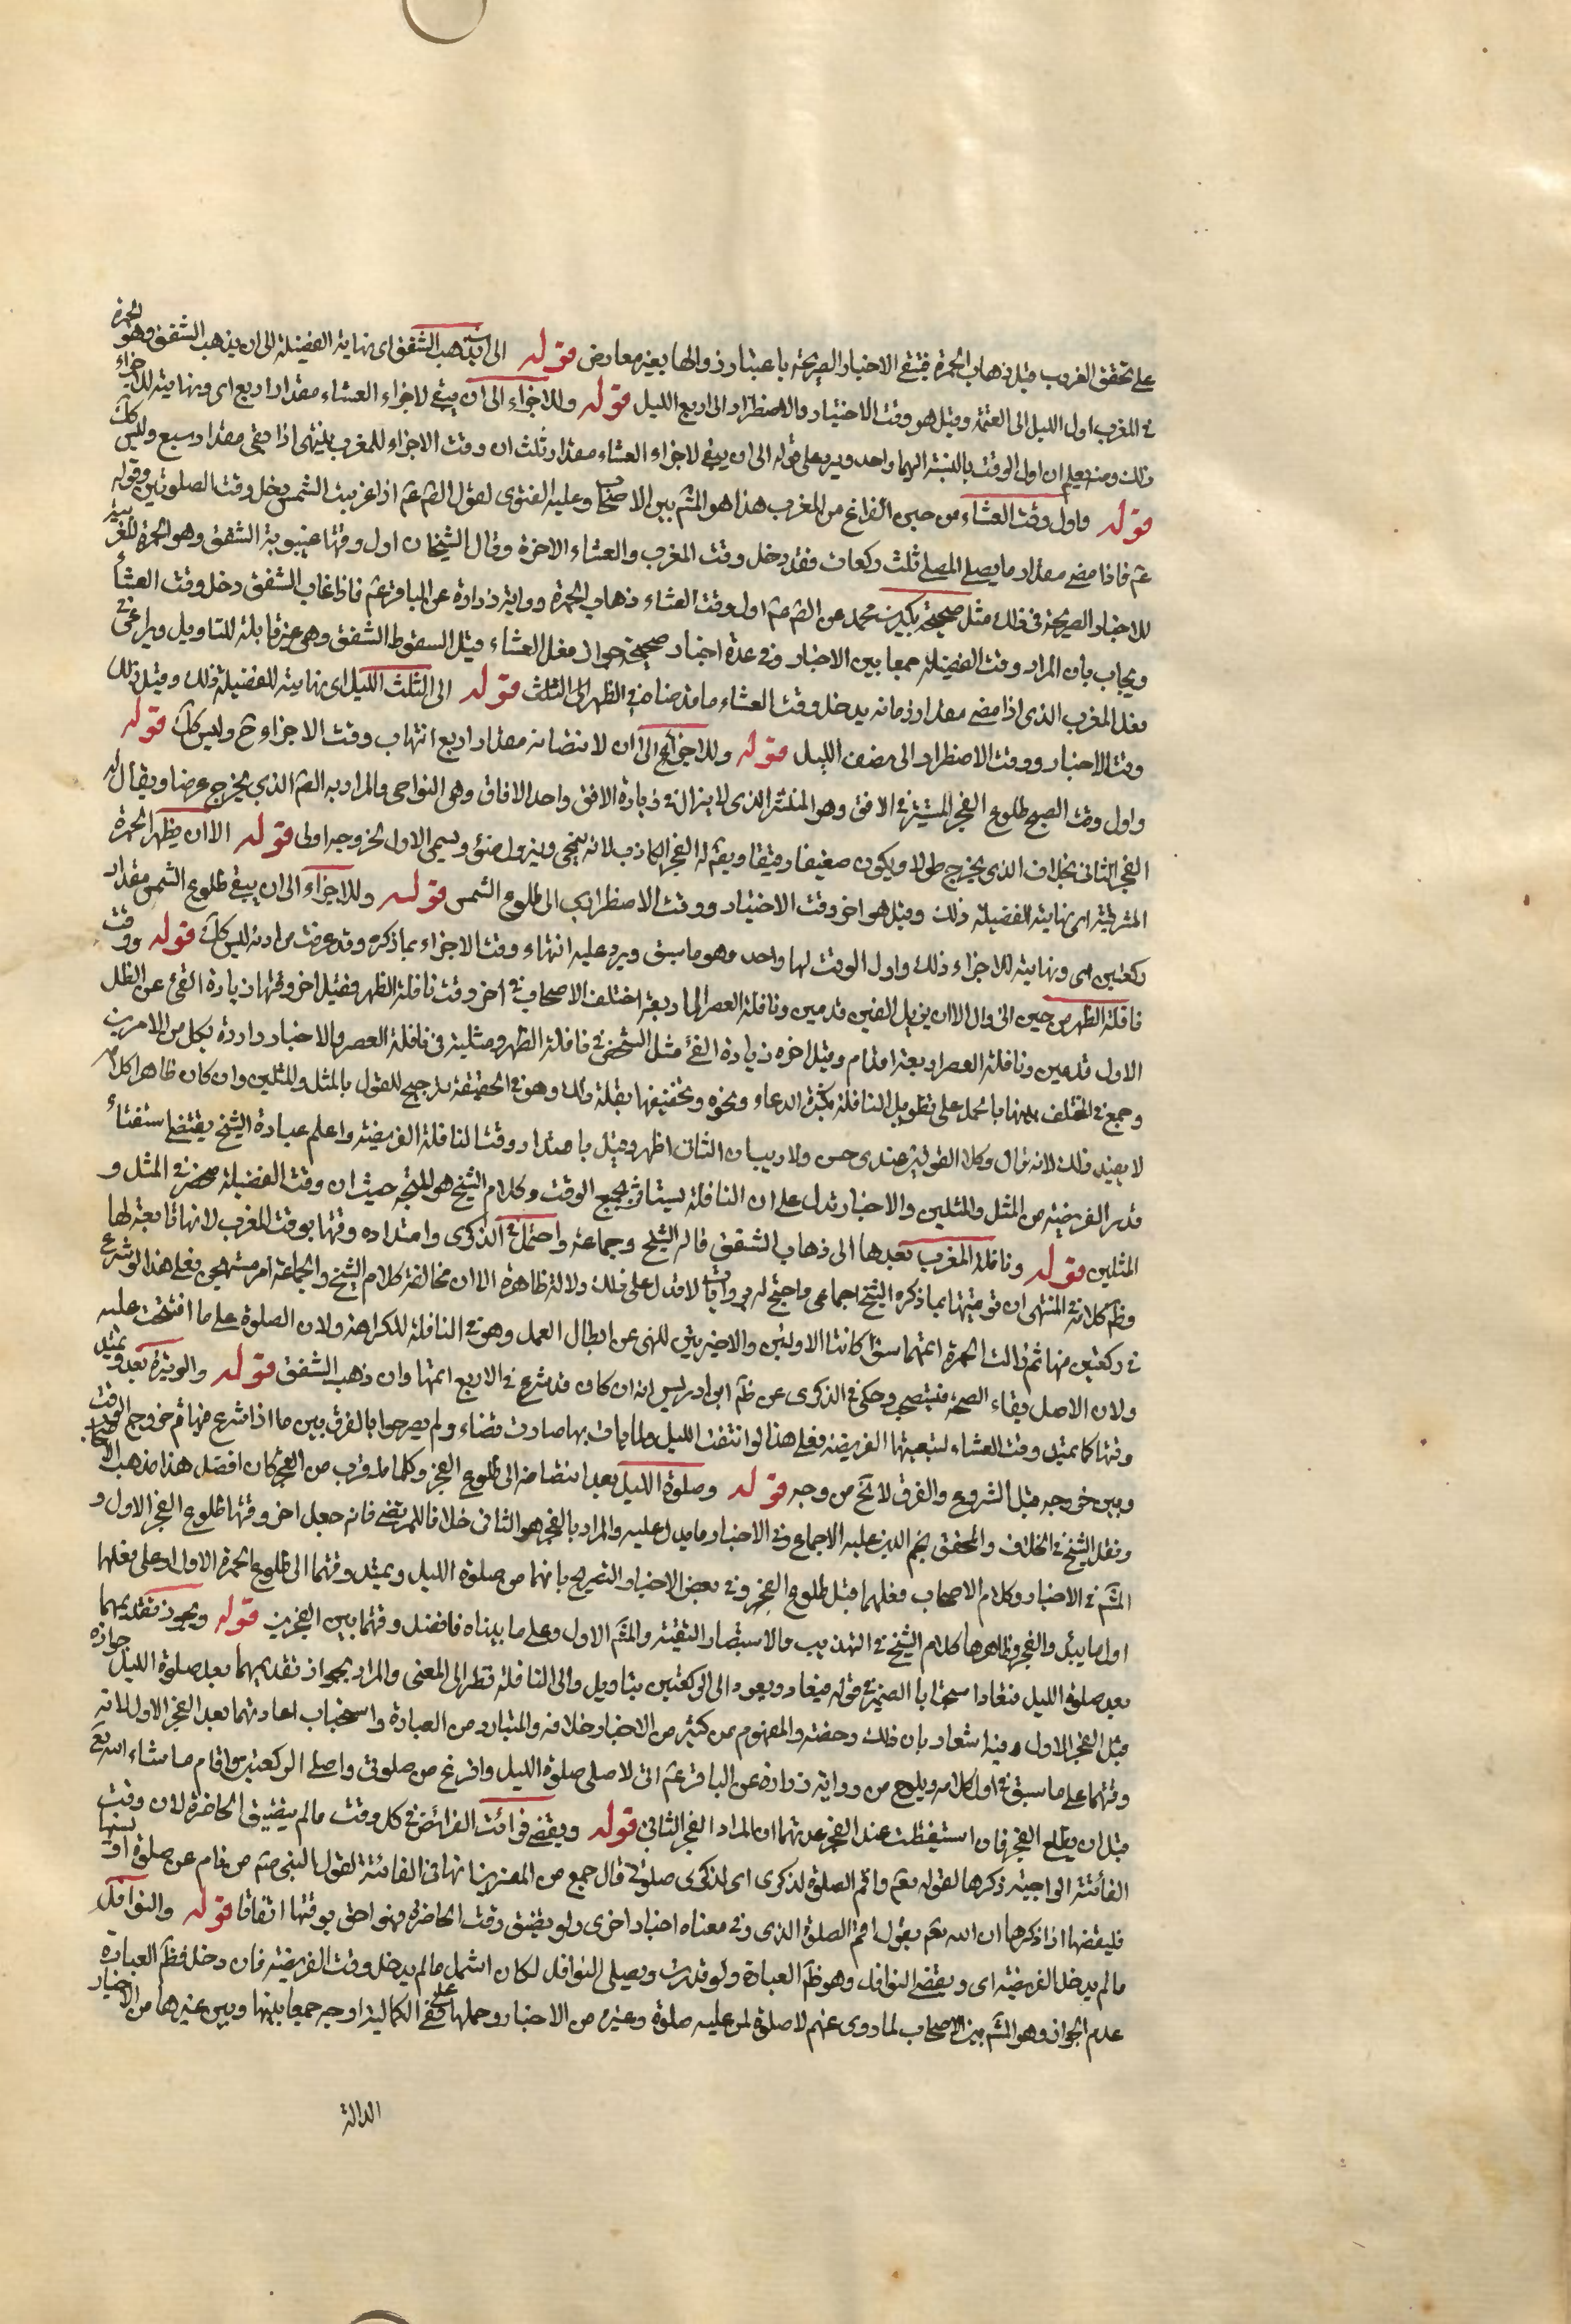 على تحقق الغروب قبل ذهاب الحمرة فتبقى الاخبار الصريحة باعتبار زوالها بغير معارض قوله الى ان يذهب الشفق اى نهاية الفضيلة الى ان يذهب الشفق وهو الحمرة
فى المغرب اول الليل الى العتمة وقيل هو وقت الاختيار والاضطرار الى اربع الليل قوله وللاجزاء الى ان يبقى لاجزاء العشاء مقدار اربع اى ونهايته للاجزاء
ذلك ومنه يعلم ان اول الوقت بالنسبة اليهما واحد ويرد على قوله الى ان يبقى لاجزاء العشاء مقدار ثلث ان وقت الاجزاء للمغرب ينتهى اذا بقى مقدار سبع وليس كك
قوله واول وقت العشاء من حين الفراغ من المغرب هذا هو المشم بين الاصحاب وعليه الفتوى لقول الصم عم اذا غربت الشمس دخل وقت الصلوتين وقوله
عم فاذا مضى مقدار ما يصلى المصلى ثلث ركعات فقد دخل وقت المغرب والعشاء الاخرة وقال الشيخان اول وقتها غيبوبة الشفق وهو الحمرة المغربية
للاخبار الصريحة فى ذلك مثل صحيحة بكير بن محمد عن الصم عم اول وقت العشاء ذهاب الحمرة ورواية زرارة عن الباقر عم فاذا غاب الشفق دخل وقت العشاء
ويجاب بان المراد وقت الفضيلة جمعا بين الاخبار وفى عدة اخبار صحيحة جواز فعل العشاء قبل السقوط الشفق وهى غير قابلة للتاويل ويراعى فى
فعل المغرب الذى اذا مضى مقدار زمانه يدخل وقت العشاء ما قدمناه فى الظهر الى الثلث قوله الى الثلث الليل اى نهايته للفضيلة ذلك وقيل ذلك
وقت الاختيار ووقت الاضطرار الى نصف الليل قوله وللاجزاء الى ان لانتصافه مقدار اربع انتهاب وقت الاجزاء وح وليس كك قوله
واول وقت الصبح طلوع الفجر المستنير فى الافق وهو المنتشر الذى لا يزال فى زيادة الافق واحد الافاق وهى النواحى والمراد به الصم الذي يخرج عرضا ويقال له
الفجر الثانى بخلاف الذى يخرج طولا ويكون ضعيفا دقيقا ويقم له الفجر الكاذب لانه يمحى ويزول ضوئ ويسمى الاول لخروجه اولى قوله الا ان يظهر الحمرة
المشرقية اى نهايته للفضيلة ذلك وقيل هو اخر وقت الاختيار ووقت الاضطرارى الى طلوع الشمس قوله وللاجزاء الى ان يبقى طلوع الشمس مقدار
ركعتين اى ونهايته للاجزاء ذلك واول الوقت لها واحد وهو ما سبق ويرد عليه انتهاء وقت الاجزاء بما ذكره وقد عرفت مرادته ليس كك قوله ووقت
نافلة الظهر من حين الزوال الا ان يزيد الفئ قدمين ونافلة العصر الى اربعة اختلف الاصحاب فى اخر وقت نافلة الظهر فقيل اخر وقتها زيادة الفئ عن الظل
الاول قدمين ونافلة العصر اربعة اقدام وقيل اخره زيادة الفئ مثل الشخص فى نافلة الظهر ومثليه فى نافلة العصر والاخبار واردة بكل من الامرين
وجمع فى المختلف بينها بالحمل على تطويل النافلة بكثرة الدعاء ونحوه وتخفيفها بقلة ذلك وهو فى الحقيقة ترجيح للقول بالمثل والمثلين وان كان ظاهر كلامه
لا يفيد ذلك لانه توال وكلا القولين عندى حسن ولا ريب ان الثانى اظهر وقيل بامتداد وقت النافلة الفريضة واعلم عبارة الشيخ يقتضى استثناء
قدر الفريضة من المثل والمثلين والاخبار تدل على ان النافلة يستاثر بجميع الوقت وكلام الشيخ هو المتجه حيث ان وقت الفضيلة منحصر فى المثل و
المثلين قوله ونافلة المغرب بعدها الى ذهاب الشفق قاله الشيخ وجماعة واحتمل فى الذكرى وامتداده وقتها بوقت المغرب لانها تابعة لها
وظم كلامه فى المنتهى ان توقيتها بما ذكره الشيخ اجماعى واحتج له بروايات لا تدل على ذلك دلالة ظاهرة الا ان مخالفة كلام الشيخ والجماعة امر مستهجن فعلى هذا لو شرع
فى ركعتين منها ثم زالت الحمرة اتمهما سواء كانتا الاوليين والاخيرتين للنهى عن ابطال العمل وهو فى النافلة للكراهة ولان الصلوة على ما افتتحت عليه
ولان الاصل بقاء الصحة فيستصحب وحكى فى الذكرى عن ظم ابن ادريس انه ان كان قد شرع فى الاربع اتمها وان ذهب الشفق قوله والوتيرة بعد ويمتد
وقتها كما يمتد وقت العشاء لتبعيتها الفريضة فعلى هذا لو انتصف الليل ولما يات بها صارت قضاء ولم يصرحوا بالفرق بين ما اذا شرع فيها ثم خروج الوقت
وبين خروجه قبل الشروع والفرق لا يخ من وجه قوله وصلوة الليل بعد انتصافه الى طلوع الفجر وكلما قرب من الفجر كان افضل هذا مذهب الاصحاب
ونقل الشيخ فى الخلاف والمحقق نجم الدين عليه الاجماع وفى الاخبار ما يدل عليه والمراد بالفجر هو الثانى خلافا للمرتضى فانه جعل اخر وقتها طلوع الفجر الاول و
المشم فى الاخبار وكلام الاصحاب فعلهما قبل طلوع الفجر وفى بعض الاخبار التصريح بانهما من صلوة الليل ويمتد وقتهما الى طلوع الحمرة الاول اد على فعلها
اول ما يبدل والفجر وظاهرها كلام الشيخ فى التهذيب والاستبصار التقية والمشم الاول وعلى ما بيناه فافضل وقتهما بين الفجرين قوله ويجوز تقديمهما
بعد صلوة الليل فتعادا استحبابا الضمير فى قوله فيعاد ويعود الى الركعتين بتاويل والى النافلة نظر الى المعنى والمراد بجواز تقديمهما بعد صلوة الليل جوازه
قبل الفجر الاول وفيه اشعار بان ذلك رخصته والمفهوم من كثير من الاخبار خلافه والمتبادر من العبارة واستحباب اعادتهما بعد الفجر الاول لانه
وقتهما على ما سبق فى اول كلامه ويلوح من رواية زرارة عن الباقر عم انى لاصلى صلوة الليل وافرغ من صلوتى واصلى الركعتين وانام ما شاء الله تع
قبل ان يطلع الفجر فان استيقظت عند الفجر عدتهما ان المراد الفجر الثانى قوله ويقضى فوائت الفرائض فى كل وقت مالم يتضيق الحاضرة لان وقت
الفائتة الواجبة ذكرها لقوله تعم واقم الصلوة لذكرى اى لذكرى صلوتى قال جمع من المفسرين انها فى الفائتة لقول النبى صم من نام عن صلوة او نسيها
فليقضها اذا ذكرها ان الله تعم يقول اقم الصلوة لذكرى وفى معناه اخبار اخرى ولو تضيق وقت الحاضرة فهو احق بوقتها اتفاقا قوله والنوافل
مالم يدخل الفريضة اى ويقضى النوافل وهو ظم العبارة ولو قدرت ويصلى النوافل لكان اشمل مالم يدخل وقت الفريضة فان دخل فظم العبارة
عدم الجواز وهو المشم بين الاصحاب لما روى عنهم لا صلوة لمن عليه صلوة وغيره من الاخبار وحملها على نفى الكمالية اوجه جمعا بينها وبين غيرها من الاخبار
الدالة